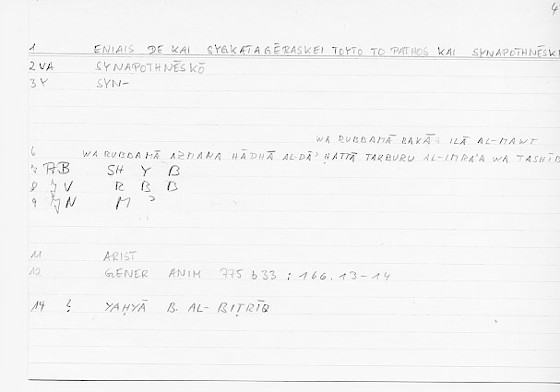 4
1 ENIAIS DE KAI SYGKATAGĒRASKEI TOYTO TO PATHOS KAI SYNAPOTHNĒSKE
2 VA SYNAPOTHNĒSKŌ
3 Y SYN-
WA RUBBAMĀ BAKĀ ILĀ AL-MAWT
6 WA RUBBAMĀ AZMANA HĀDHĀ AL-DĀʾ ḤATTĀ TAKBURU AL-IMRAʾA WA TASHĪB
SH Y B
8 V R B B
9 N M ʾ
11 ARIST
12 GENER ANIM 775 b33 : 166.13-14
14 YAḤYĀ B. AL-BIṬRĪQ